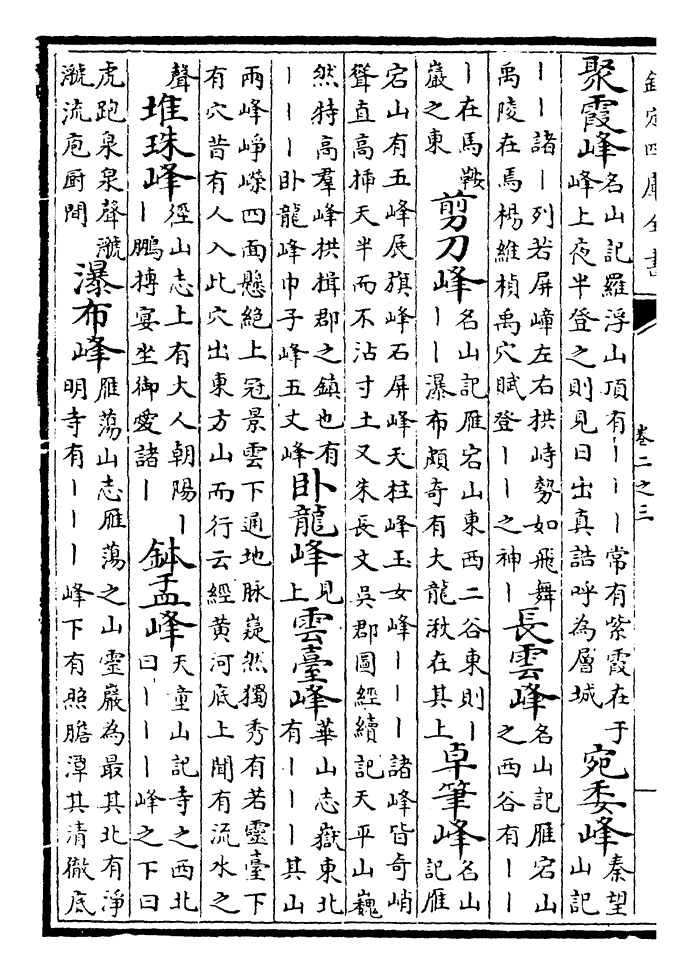 欽定四庫全書
卷二之三
聚霞峰
名山記羅浮山頂有丨丨丨常有紫霞在于
峰上夜半登之則見日出真誥呼為層城
宛委峰
秦望
山記
丨丨諸丨列若屏嶂左右拱峙勢如飛舞
禹陵在焉楊維楨禹穴賦登丨丨之神丨
長雲峰
名山記雁宕山
之西谷有丨丨
丨在馬鞍
巖之東
剪刀峰
名山記雁宕山東西二谷東則丨
丨丨瀑布頗奇有大龍湫在其上
卓筆峰
名山
記雁
宕山有五峰展旗峰石屏峰天柱峰玉女峰丨丨丨諸峰皆奇峭
聳直高揷天半而不沾寸土又朱長文吳郡圖經續記天平山巍
然特高羣峰拱揖郡之鎮也有
丨丨丨卧龍峰巾子峰五丈峰
卧龍峰
見
上
雲臺峰
華山志嶽東北
有丨丨丨其山
兩峰崢嶸四面懸絶上冠景雲下通地脉嶷然獨秀有若靈臺下
有穴昔有人入此穴出東方山而行云經黄河底上聞有流水之
聲
堆珠峰
徑山志上有大人朝陽丨
丨鵬摶宴坐御愛諸丨
鉢盂峰
天童山記寺之西北
曰丨丨丨峰之下曰
虎跑泉泉聲㶁
㶁流庖厨間
瀑布峰
雁蕩山志雁蕩之山靈巖為最其北有淨
明寺有丨丨丨峰下有照膽潭其清徹底